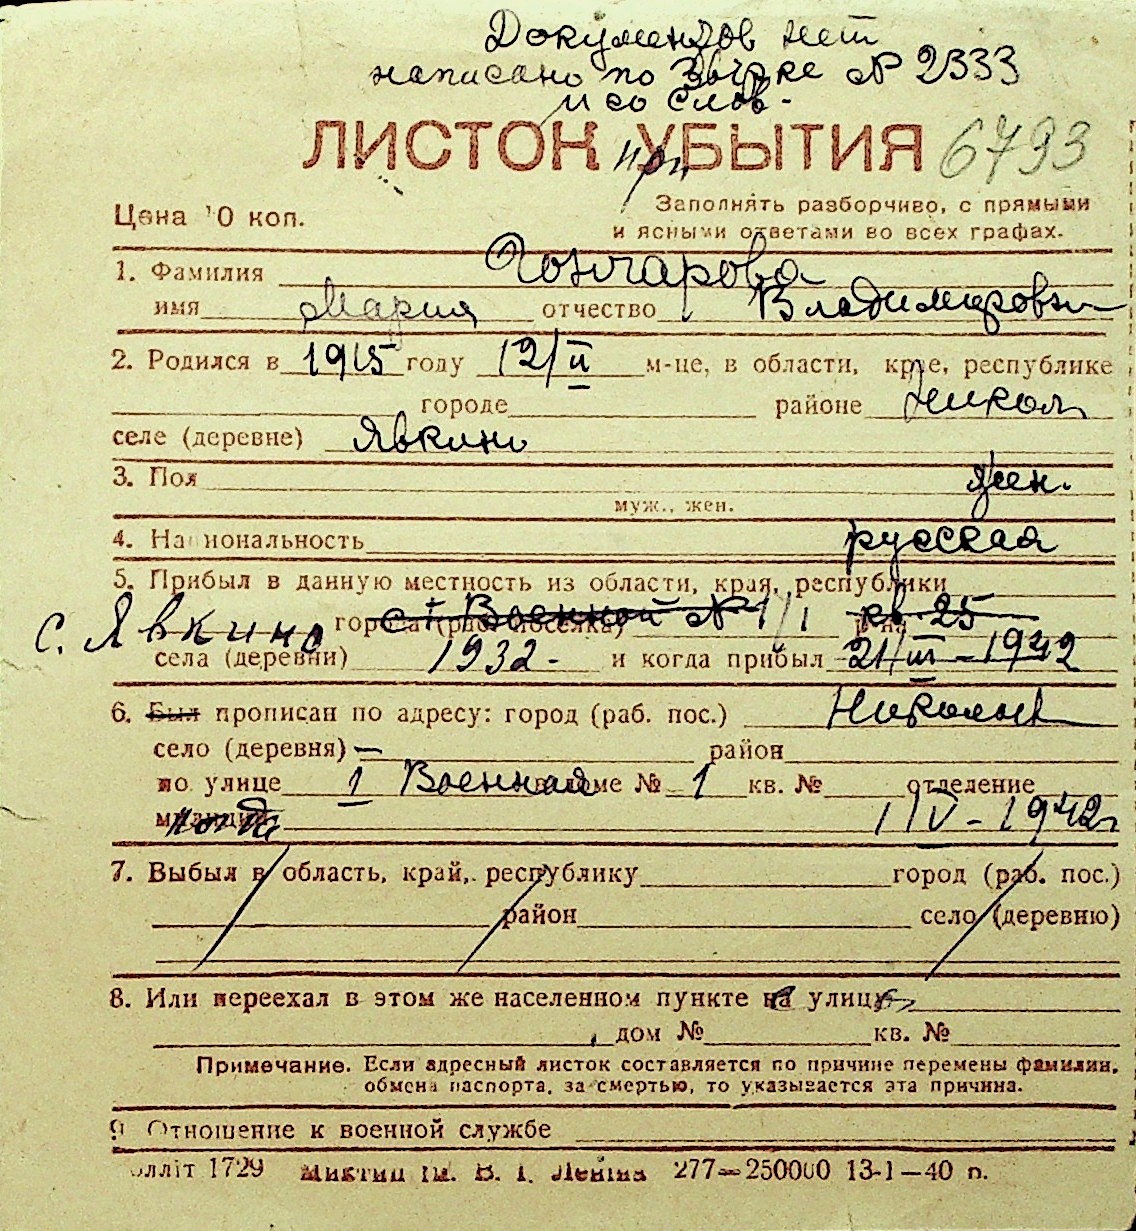 Документов нет
написано по Явке № 2333
и со слов.
ЛИСТОК УБЫТИЯ 6793
Цена 10 коп.
Заполнять разборчиво, с прямыми
и ясными ответами во всех графах.
1. Фамилия Гончарова
имя Мария отчество Владимировна
2. Родился в 1915 году 12/II м-це, в области, крае, республике
городе районе Никол
селе (деревне) Явкино
3. Пол жен.
муж., жен.
4. Национальность русская
5. Прибыл в данную местность из области, края, республики
с. Явкино города (раб. поселка) Военной № 1/1 кв 25
села (деревни) 1932 - и когда прибыл 21/III - 1942
6. Был прописан по адресу: город (раб. пос.) Николаев
село (деревня) — район
по улице 1 Военная в доме № 1 кв. № отделение
милиции 1/IV - 1942г
7. Выбыл в область, край, республику город (раб. пос.)
район село (деревню)
8. Или переехал в этом же населенном пункте на улицу
дом № кв. №
Примечание. Если адресный листок составляется по причине перемены фамилии,
обмена паспорта, за смертью, то указывается эта причина.
9. Отношение к военной службе
олліт 1729 ім. В. І. Леніна 277—250000 13-1—40 р.